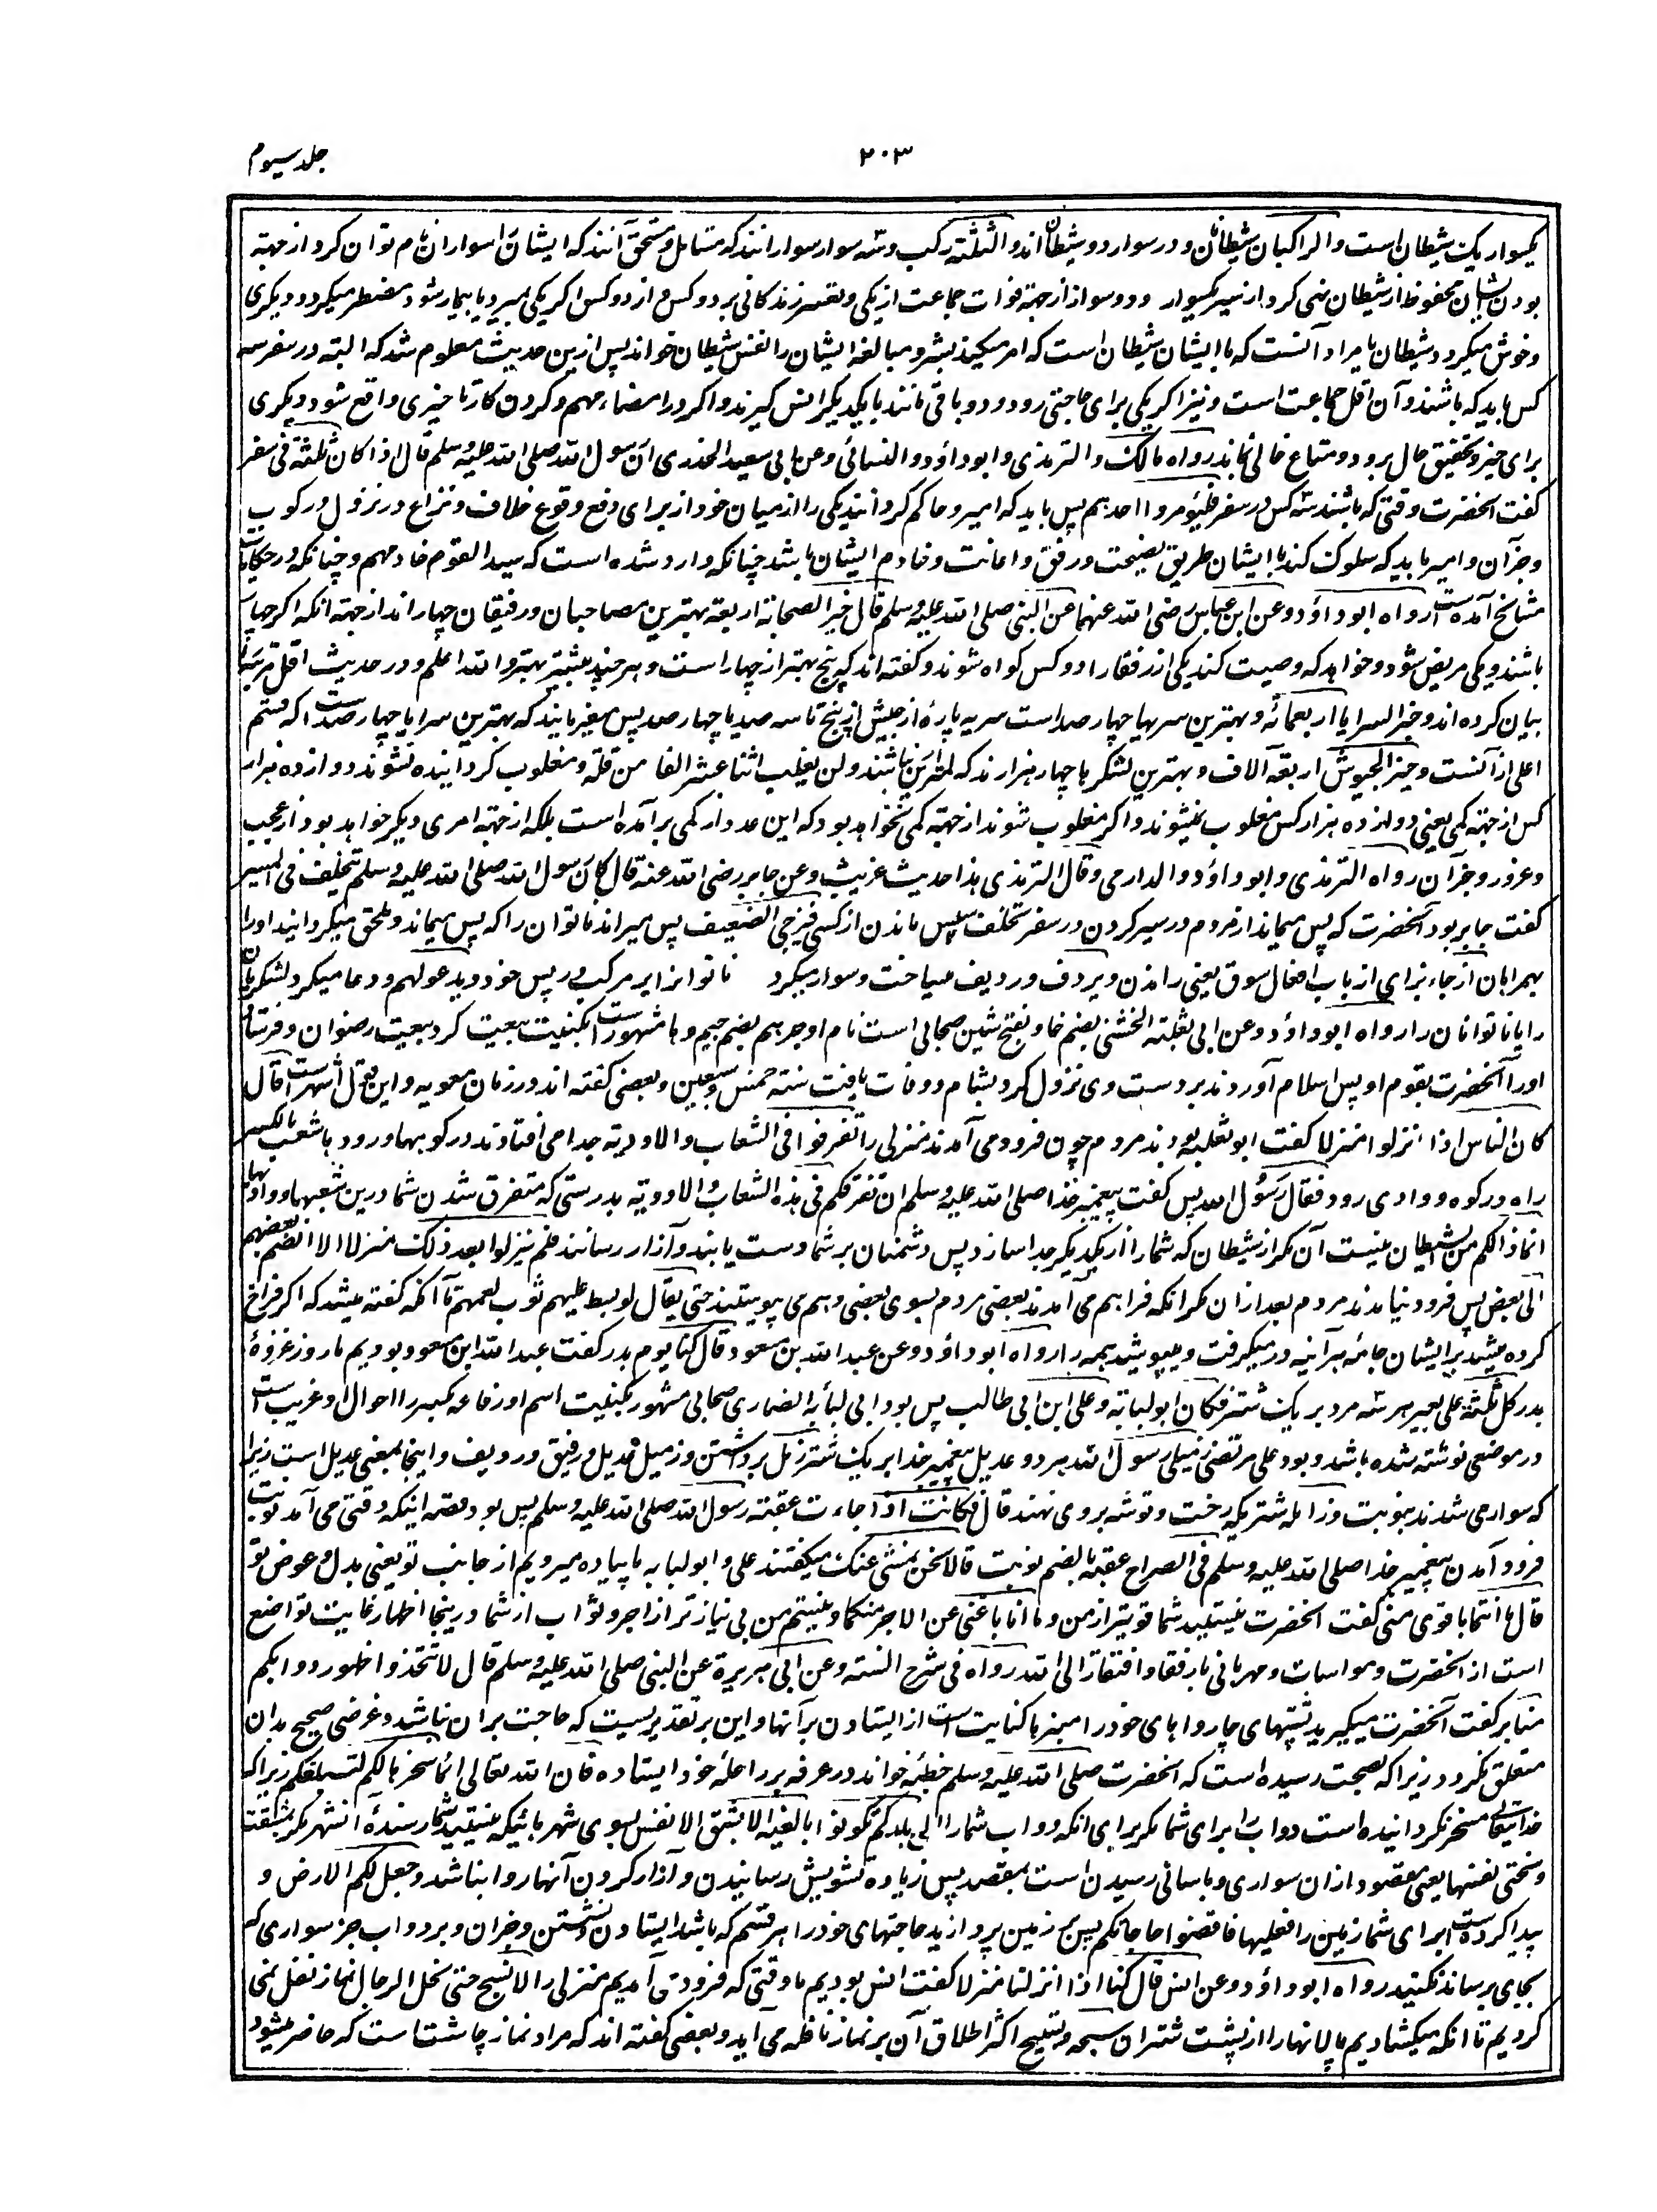 جلد سیوم
۲۰۳
یکسوار یک شیطان است والراکبان شیطانان و در سوار دو شیطان اند والثلثة رکب و سه سوار سوارانند که متامل و مستحق آنند که ایشان را سواران نام توان کرد از جهته
بودن ایشان محفوظ از شیطان نهی کرد از سیر یکسوار و دو سواز از جهته فوات جماعت از یکی و تعسر زندکانی بر دو کس و از دو کس اکر یکی بمیرد یا بیمار شود مضطر میکردد دیکری
و خوش میکردد شیطان یا مراد آنست که با ایشان شیطان است که امر میکند بشر و مبالغه ایشان را نفس شیطان خواند پس ازین حدیث معلوم شد که البته در سفر سه
کس باید که باشند و آن اقل جماعت است و نیز اکر یکی برای حاجتی رود دو باقی مانند با یکدیکر انس کیرند و اکر در امضاء مهم و کردن کار تاخیری واقع شود دیکری
برای خبر و تحقیق حال برود و متاع خالی نماند رواه مالک والترمذی وابو داؤد والنسائی وعن ابی سعید الخدری ان رسول الله صلی الله علیه وسلم قال اذا کان ثلثة فی سفر
کفت آنحضرت وقتی که باشند سه کس در سفر فلیؤمروا احدهم پس باید که امیر و حاکم کردانند یکی را از میان خود از برای دفع وقوع خلاف و نزاع در نزول و رکوب
و جز آن و امیر باید که سلوک کند با ایشان طریق نصیحت و رفق و امانت و خادم ایشان باشد چنانکه وارد شده است که سید القوم خادمهم و چنانکه در حکایات
مشایخ آمده است رواه ابو داؤد وعن ابن عباس رضی الله عنهما عن النبی صلی الله علیه وسلم قال خیر الصحابة اربعة بهترین مصاحبان و رفیقان چهار اند از جهته انکه اکر چهار
باشند و یکی مریض شود و خواهد که وصیت کند یکی از رفقا را دو کس کواه شوند و کفته اند که پنج بهتر از چهار است و هر چند بیشتر بهتر والله اعلم و در حدیث اقل مرتبه را
بیان کرده اند وخیر السرایا اربعمائة و بهترین سریها چهار صد است سریه پارهٔ از جیش از پنج تا سه صد یا چهار صد پس میفرمایند که بهترین سرایا چهار صد است که قسم
اعلی از آنست وخیر الجیوش اربعة آلاف و بهترین لشکرها چهار هزارند که کمتر ازین نباشند ولن یغلب اثنا عشر الفا من قلة و مغلوب کردانیده نشوند دوازده هزار
کس از جهته کمی یعنی دوازده هزار کس مغلوب نمیشوند و اکر مغلوب شوند از جهته کمی نخواهد بود که این عدد از کمی برآمده است بلکه از جهته امری دیکر خواهد بود از عجب
و غرور و جز آن رواه الترمذی وابو داؤد والدارمی وقال الترمذی هذا حدیث غریب وعن جابر رضی الله عنه قال کان رسول الله صلی الله علیه وسلم یتخلف فی المسیر
کفت جابر بود آنحضرت که پس میماند از مردم در سیر کردن در سفر تخلف پس ماندن از کسی فیزجی الضعیف پس میراند ناتوان را که پس میماند و ملحق میکردانید او را
بهمراهان ازجاء بزای از باب افعال سوق یعنی راندن ویردف و ردیف میساخت و سوار میکرد ناتوانرا بر مرکب در پس خود ویدعو لهم و دعا میکرد لشکریان
را یا ناتوانان را رواه ابو داؤد وعن ابی ثعلبة الخشنی بضم خا و بفتح شین صحابی است نام او جرهم بضم جیم و ها مشهور است بکنیت بیعت کرد بیعت رضوان و فرستاد
او را آنحضرت بقوم او پس اسلام آوردند بر دست وی نزول کرد بشام و وفات یافت سنته خمس وسبعین و بعضی کفته اند در زمان معویه و این قول اشهر است قال
کان الناس اذا نزلوا منزلا کفت ابو ثعلبه بودند مردم چون فرود می آمدند منزلی را تفرقوا فی الشعاب والاودیة جدا می افتادند در کوبها و رودها شعب بالکسر
راه در کوه و وادی رود فقال رسول الله پس کفت پیغمبر خدا صلی الله علیه وسلم ان تفرقکم فی هذه الشعاب والاودیة بدرستی که متفرق شدن شما درین شعبها و وادیها
انما ذالکم من الشیطان نیست آن مکر از شیطان که شما را از یکدیکر جدا سازد پس دشمنان بر شما دست یابند و آزار رسانند فلم ینزلوا بعد ذلک منزلا الا انضم بعضهم
الی بعض پس فرود نیامدند مردم بعد ازان مکر انکه فراهم می آمدند بعضی مردم بسوی بعضی و بهم می پیوستند حتی یقال لو بسط علیهم ثوب لعمهم تا آنکه کفته میشد که اکر فراخ
کرده میشد بر ایشان جامه هر آینه در میکرفت و میپوشید همه را رواه ابو داؤد وعن عبد الله بن مسعود قال کنا یوم بدر کفت عبد الله ابن مسعود بودیم ما روز غزوهٔ
بدر کل ثلثة علی بعیر هر سه مرد بر یک شتر فکان ابو لبابة وعلی ابن ابی طالب پس بود ابی لبابه انصاری صحابی مشهور بکنیت اسم او رفاعه بکسر را احوال او غریب است
در موضعی نوشته شده باشد و بود علی مرتضی زمیلی رسول الله هر دو عدیل پیغمبر خدا بر یک شتر زمل برداشتن و زمیل عدیل و رفیق و ردیف و اینجا بمعنی عدیل است زیرا
که سوار می شدند بنوبت و زامله شتریکه رخت و توشه بر وی نهند قال فکانت اذا جاءت عقبة رسول الله صلی الله علیه وسلم پس بود قصه اینکه وقتی می آمد نوبت
فرود آمدن پیغمبر خدا صلی الله علیه وسلم فی الصراح عقبه بالضم نوبت قالا نحن نمشی عنک میکفتند علی و ابو لبابه ما پیاده میرویم از جانب تو یعنی بدل و عوض تو
قال ما انتما باقوی منی کفت آنحضرت نیستید شما قویتر از من وما انا باغنی عن الاجر منکما و نیستم من بی نیازتر از اجر و ثواب از شما درینجا اظهار غایت تواضع
است از آنحضرت و مواسات و مهربانی با رفقا و افتقار الی الله رواه فی شرح السنه وعن ابی هریرة عن النبی صلی الله علیه وسلم قال لا تتخذوا ظهور دوابکم
منابر کفت آنحضرت میکیرید پشتهای چاروا های خود را منبرها کنایت است از ایستادن بر آنها و این بر تقدیریست که حاجت بران نباشد و غرضی صحیح بدان
متعلق نکردد زیرا که بصحت رسیده است که آنحضرت صلی الله علیه وسلم خطبه خواند در عرفه بر راحله خود ایستاده فان الله تعالی انما سخرها لکم لتبلغکم زیرا که
خدایتعالی مسخر نکردانیده است دواب را برای شما مکر برای انکه دواب شما را الی بلد لم تکونوا بالغیه الا بشق الانفس بسوی شهرهائیکه نیستید شما رسندهٔ آنشهر مکر بمشقت
و سختی نفسها یعنی مقصود ازان سواری و باسانی رسیدن است بمقصد پس زیاده تشویش رسانیدن و آزار کردن آنها روا نباشد وجعل لکم الارض و
پیدا کرده است برای شما زمین را فعلیها فاقضوا حاجاتکم پس بر زمین پردازید حاجتهای خود را هر قسم که باشد ایستادن و نشستن و جزان و بر دواب جز سواری که
بجای برساند نکنید رواه ابو داؤد وعن انس قال کنا اذا نزلنا منزلا کفت انس بودیم ما وقتی که فرود می آمدیم منزلی را لا نسبح حتی نحل الرحال نماز نفل نمی
کردیم تا انکه میکشادیم پالانها را از پشت شتران سبحه و تسبیح اکثر اطلاق آن بر نماز نافله می آید و بعضی کفته اند که مراد نماز چاشت است که حاضر میشود